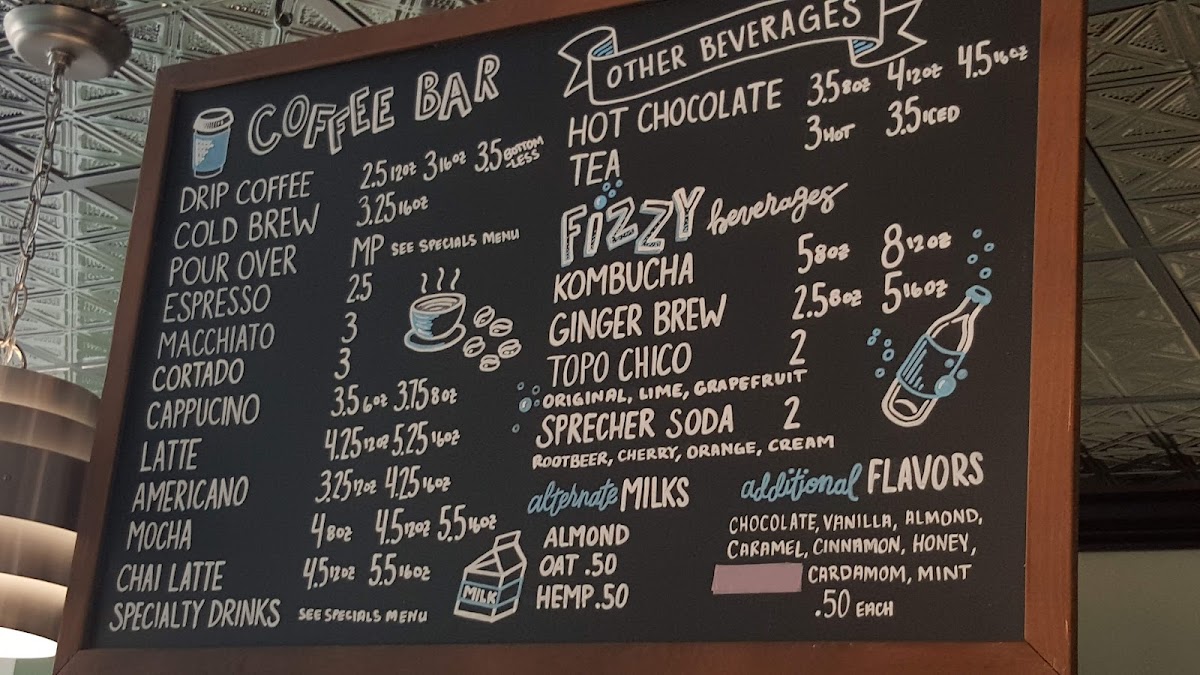 COFFEE BAR
DRIP COFFEE 2.5 12oz 3 16oz 3.5 BOTTOM-LESS
COLD BREW 3.25 16oz
POUR OVER MP SEE SPECIALS MENU
ESPRESSO 2.5
MACCHIATO 3
CORTADO 3
CAPPUCINO 3.5 6oz 3.75 8oz
LATTE 4.25 12oz 5.25 16oz
AMERICANO 3.25 12oz 4.25 16oz
MOCHA 4 8oz 4.5 12oz 5.5 16oz
CHAI LATTE 4.5 12oz 5.5 16oz
SPECIALTY DRINKS SEE SPECIALS MENU
MILK
OTHER BEVERAGES
HOT CHOCOLATE 3.5 8oz 4 12oz 4.5 16oz
TEA 3 HOT 3.5 ICED
FIZZY beverages
KOMBUCHA 5 8oz 8 12oz
GINGER BREW 2.5 8oz 5 16oz
TOPO CHICO 2
ORIGINAL, LIME, GRAPEFRUIT
SPRECHER SODA 2
ROOTBEER, CHERRY, ORANGE, CREAM
alternate MILKS
ALMOND
OAT .50
HEMP .50
additional FLAVORS
CHOCOLATE, VANILLA, ALMOND,
CARAMEL, CINNAMON, HONEY,
CARDAMOM, MINT
.50 EACH